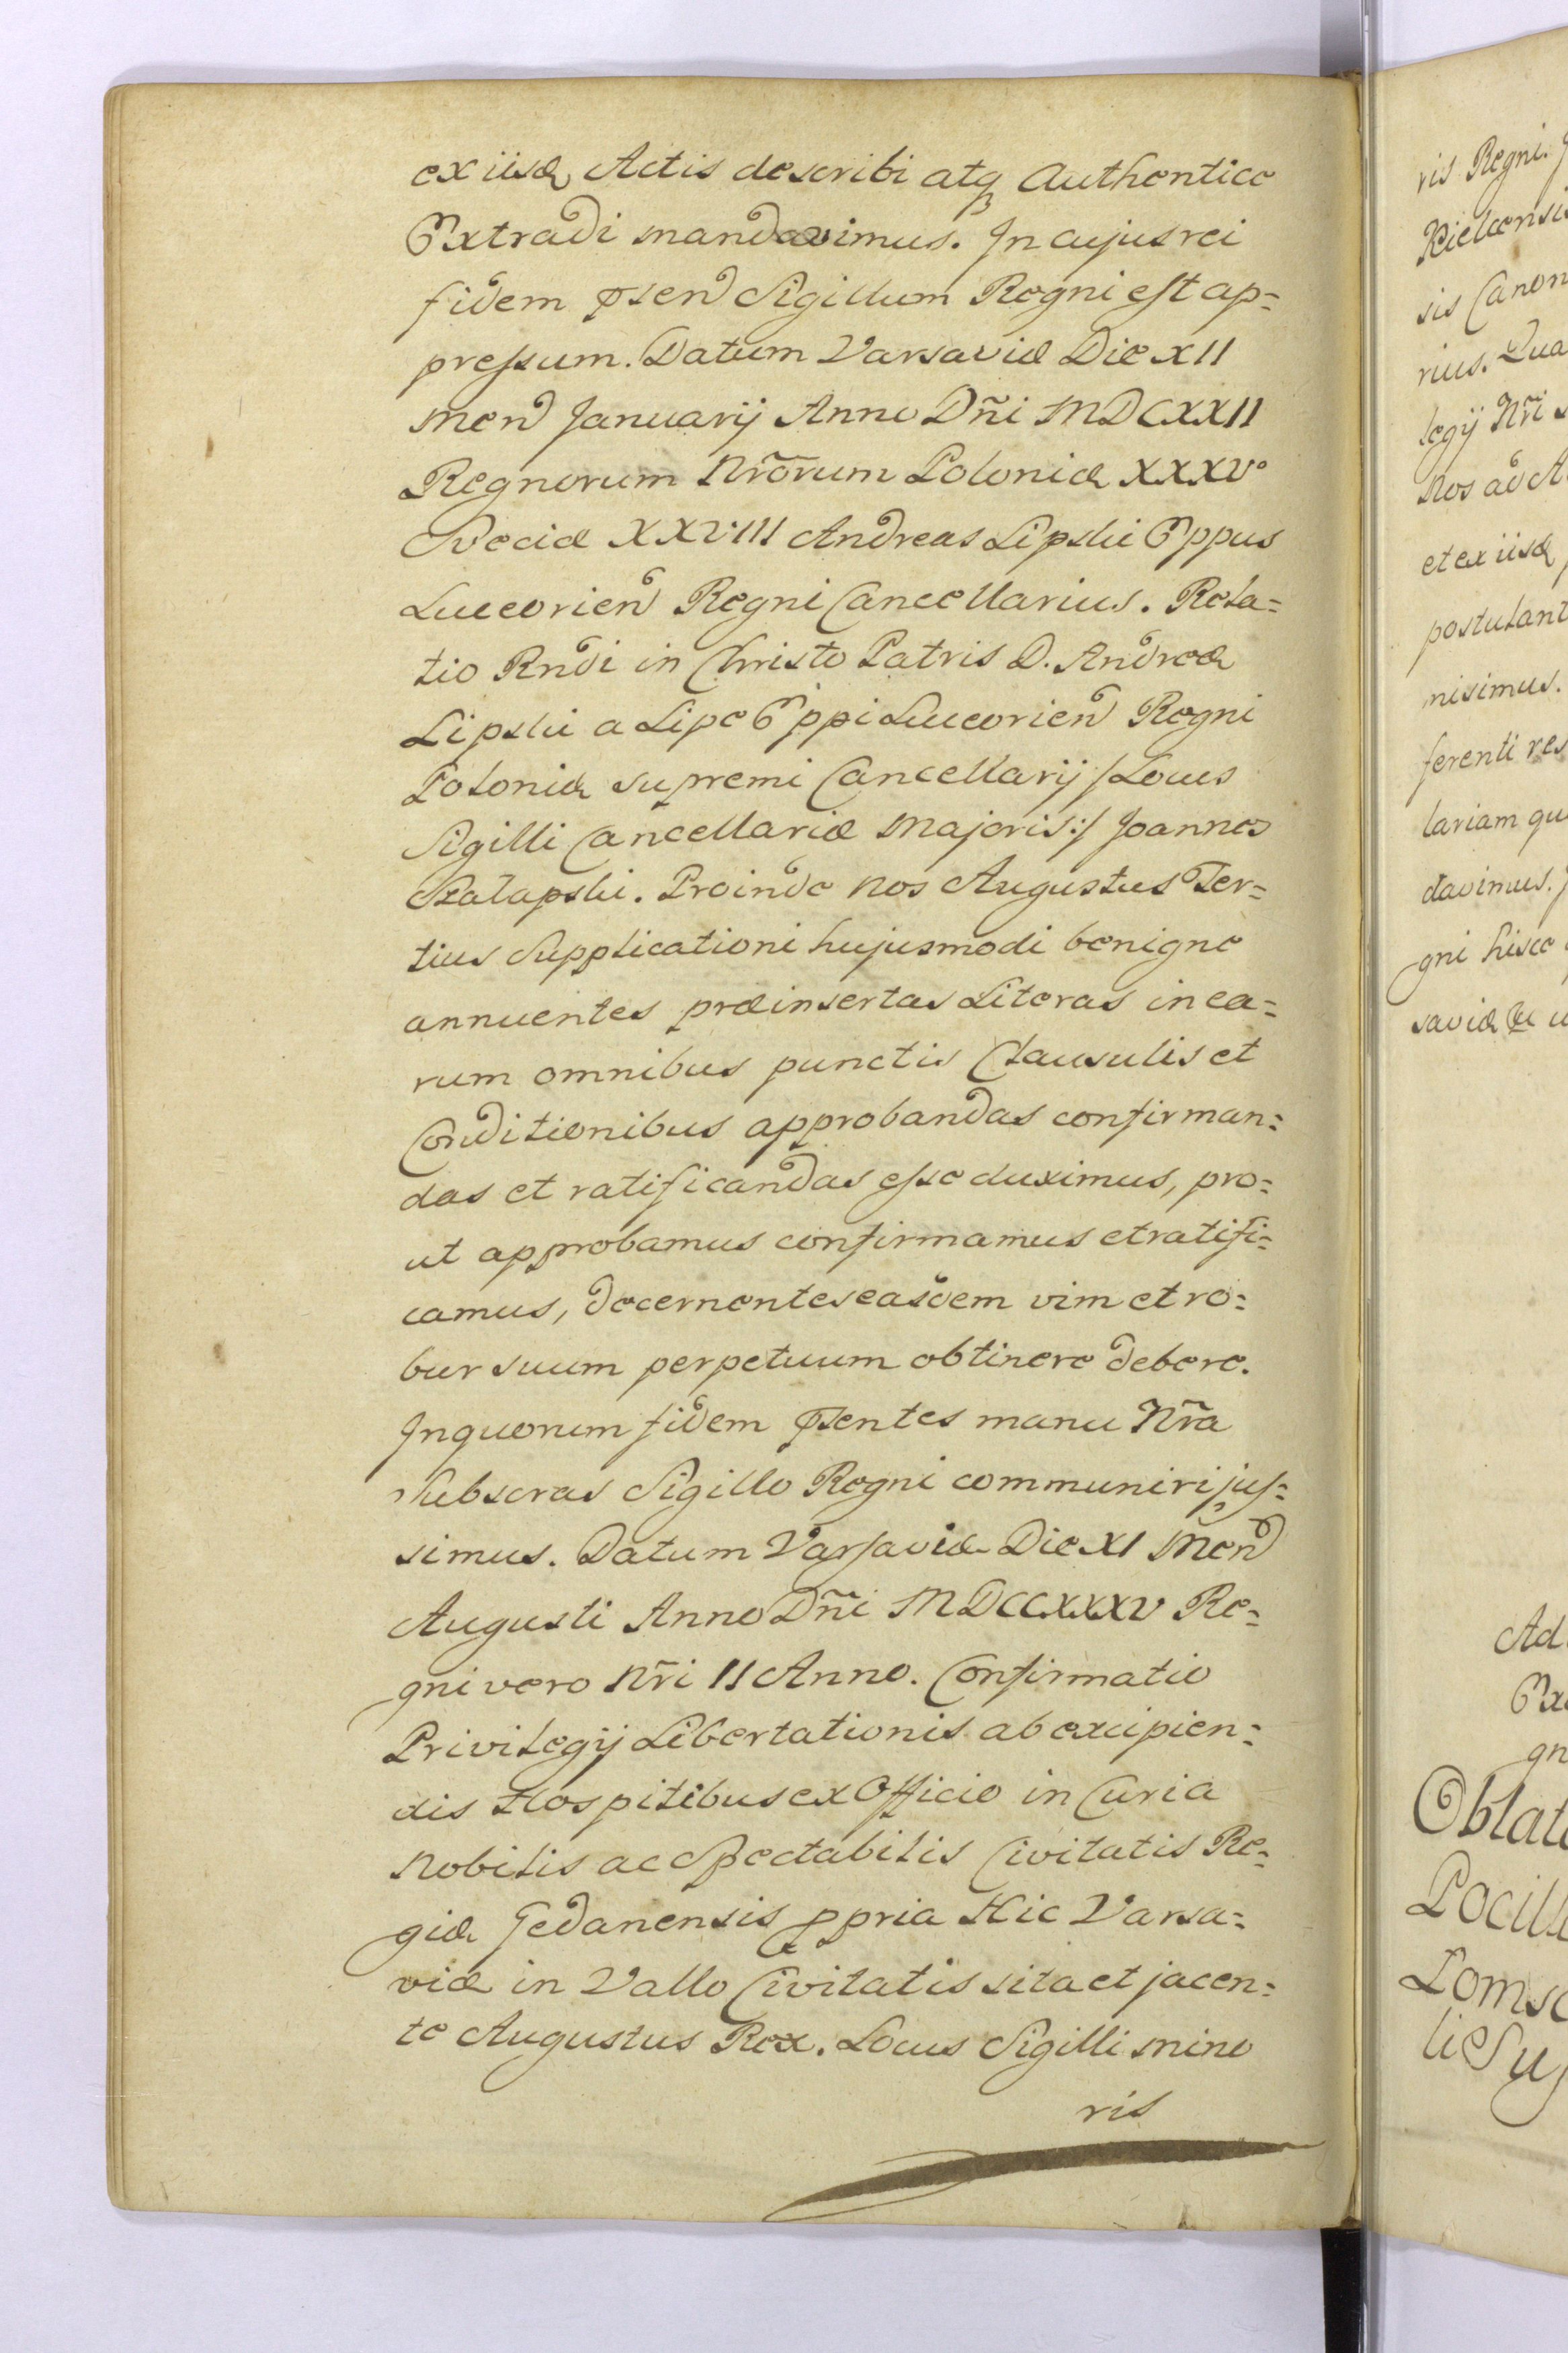 ex iisd Actis describi atq Authentice
Extradi mandavimus. In cujus rei
fidem psen Sigillum Regni est ap=
pressum. Datum Varsaviæ Die XII
Men Januarij Anno Dñi MDCXXII
Regnorum Nrõrum Poloniæ XXXVº
Sveciæ XXVIII Andreas Lipski Eppus
Luceorien Regni Cancellarius. Rela=
tio Rndi in Christo Patris D. Andreæ
Lipski a Lipe Eppi Luceorien Regni
Poloniæ supremi Cancellarij /Locus
Sigilli Cancellariæ Majoris:/ Joannes
Szalapski. Proinde nos Augustus Ter=
tius Supplicationi hujusmodi benigne
annuentes præinsertas Literas in ea=
rum omnibus punctis Clausulis et
Conditionibus approbandas confirman=
das et ratificandas esse duximus, pro=
ut approbamus confirmamus et ratifi=
camus, decernentes easdem vim et ro=
bur suum perpetuum obtinere debere.
In quorum fidem psentes manu Nrã
Subscras Sigillo Regni communiri jus=
simus. Datum Varsaviæ Die XI Men
Augusti Anno Dñi MDCCXXXV Re=
gni vero Nrĩ II Anno. Confirmatio
Privilegij Libertationis ab excipien=
dis Hospitibus ex Officio in Curia
Nobilis ac Spectabilis Civitatis Re=
giæ Gedanensis ppria Hic Varsa=
viæ in Vallo Civitatis sita et jacen=
te Augustus Rex. Locus Sigilli mino
ris
ris Regni.
Kielcensis
sis Canon
rius. Qua
legij Nri
Nos ad A
et ex iisd
postulant
nisimus.
ferenti res
lariam qu
davimus.
gni hisce
saviæ
Ad
Ex
gn
Oblat
Pocill
Lomsc
lie Su